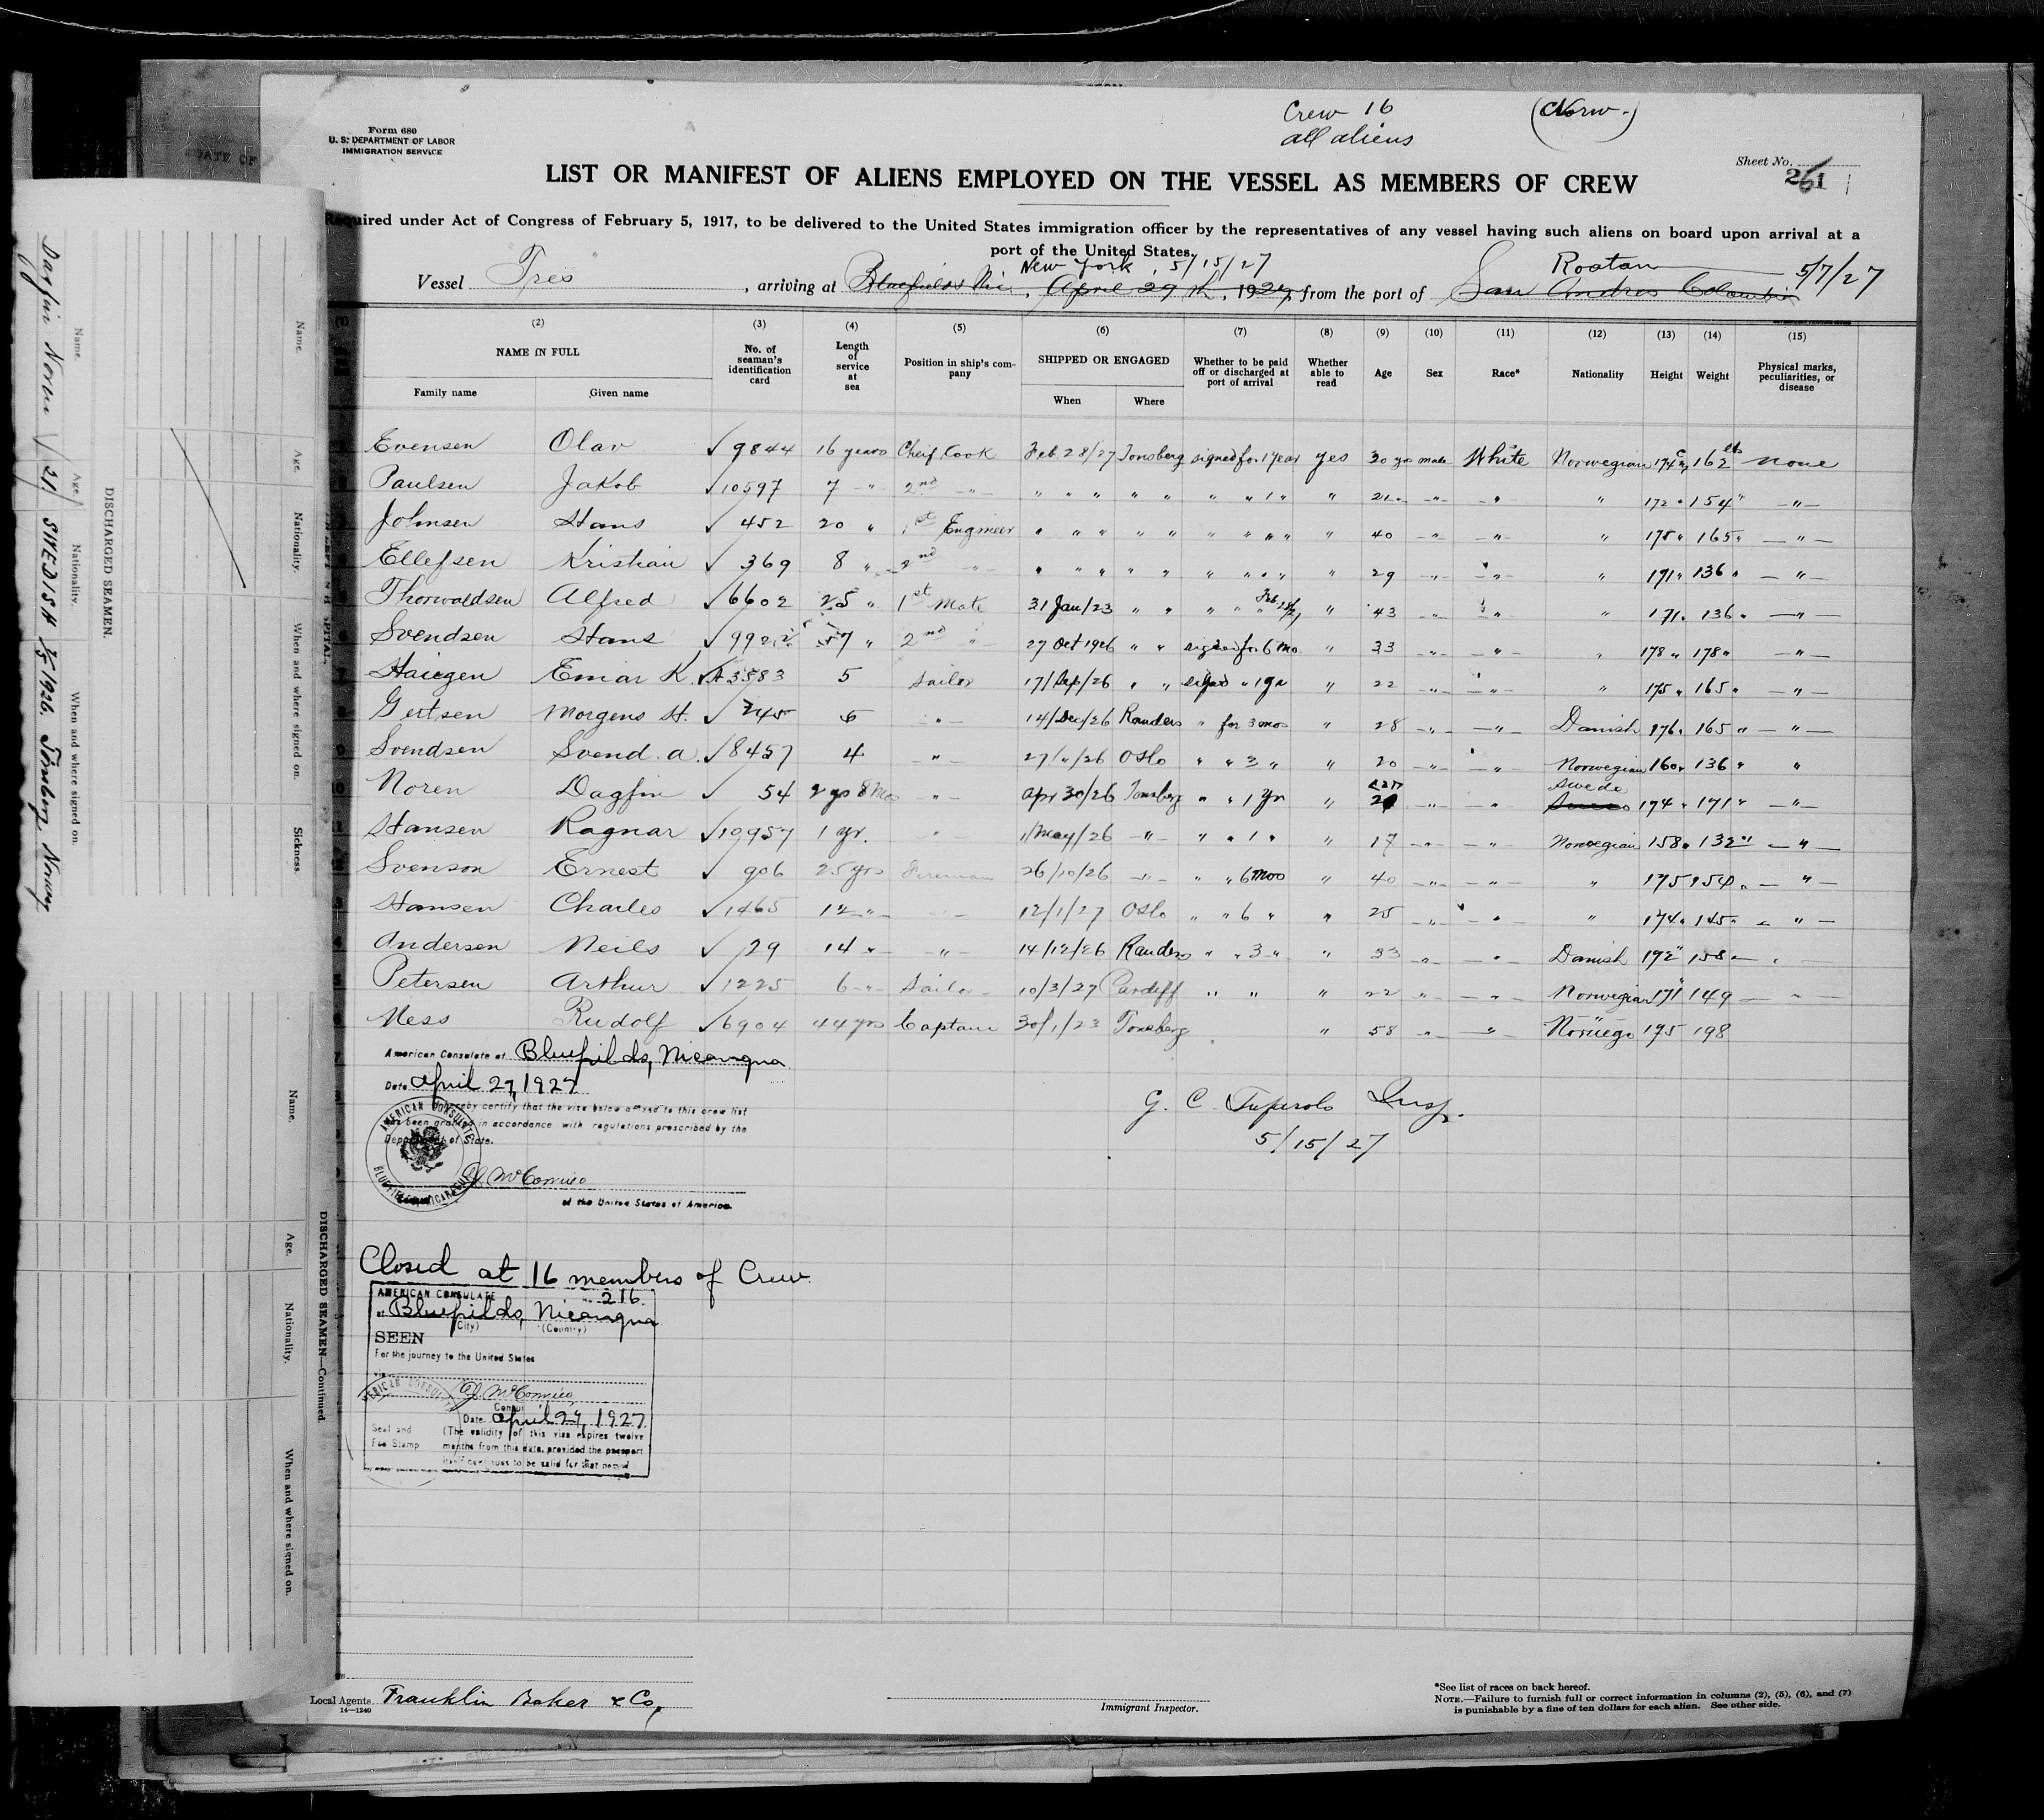 Crew 16 (Norw.)
all aliens
Form 680
U. S. DEPARTMENT OF LABOR
IMMIGRATION SERVICE
Sheet No.
LIST OR MANIFEST OF ALIENS EMPLOYED ON THE VESSEL AS MEMBERS OF CREW
Required under Act of Congress of February 5, 1917, to be delivered to the United States immigration officer by the representatives of any vessel having such aliens on board upon arrival at a
port of the United States.
New York, 5/15/27 Roatan 5/7/27
Vessel Tres, arriving at Bluefields Nic., April 29th, 1927, from the port of San Andres Colombia
(1) (2) (3) (4) (5) (6) (7) (8) (9) (10) (11) (12) (13) (14) (15)
NAME IN FULL No. of seaman's identification card Length of service at sea Position in ship's company SHIPPED OR ENGAGED Whether to be paid off or discharged at port of arrival Whether able to read Age Sex Race* Nationality Height Weight Physical marks, peculiarities, or disease
Family name Given name When Where
Evensen Olav ✓ 9844 16 years Cheif Cook Feb 28/27 Tonsberg signed for 1 year yes 30 yrs male White Norwegian 174 162 lbs none
Paulsen Jakob ✓ 10597 7 -"- 2nd -"- " " " " " " " 1 " " 21 -"- -"- " 172 " 154 " -"-
Johnsen Hans ✓ 452 20 " 1st Engineer " " " " " " " " " " 40 -"- -"- " 178 " 165 " -"-
Ellefsen Kristian ✓ 369 8 " 2nd -"- " " " " " " " " " " 29 -"- -"- " 171 " 136 " -"-
Thorwaldsen Alfred ✓ 6602 25 " 1st Mate 31 Jan/23 " " " " " 43 -"- -"- " 171 " 136 " -"-
Svendsen Hans ✓ 2nd " 27 Oct 1926 " " signed for 6 mo " 33 -"- -"- " 178 " 178 " -"-
Einar K. ✓ 3583 5 Sailor 17/Sep/26 " " signed " 1 yr " 22 -"- -"- " 175 " 165 " -"-
Gertsen Morgens H. ✓ 245 5 -"- 14/Dec/26 Randers " for 3 mos " 28 -"- -"- Danish 176 " 165 " -"-
Svendsen Svend. A. ✓ 8457 4 -"- 27/"/26 Oslo " " 3 " " 20 -"- -"- Norwegian 160 " 136 " "
Noren Dagfin ✓ 54 2 yrs 8 Mos -"- Apr 30/26 Tonsberg " " 1 yr " 21 -"- " Swede 174 " 171 " -"-
Hansen Ragnar ✓ 10957 1 yr. -"- 11/May/26 -"- " " 1 " " 17 -"- -"- Norwegian 158 " 132 " -"-
Svenson Ernest ✓ 906 25 yrs Fireman 26/10/26 -"- " " 6 mos " 40 -"- -"- " 175 154 " -"-
Hansen Charles ✓ 1465 12 -"- -"- 12/1/27 Oslo " " 6 " " 25 -"- -"- " 174 " 145 " -"-
Andersen Neils ✓ 29 14 " -"- 14/12/26 Randers " " 3 " " 33 -"- -"- Danish 172 " 158 -"-
Petersen Arthur ✓ 1225 6 -"- Sailor 10/3/27 Cardiff " " " 22 -"- -"- Norwegian 171 149 -"-
Ness Rudolf ✓ 6904 44 yrs Captain 30/1/23 Tonsberg " 58 " -"- Noruego 175 198
American Consulate at Bluefields, Nicaragua
Date April 27, 1927
I hereby certify that the visa below affixed to this crew list
has been granted in accordance with regulations prescribed by the
Department of State.
AMERICAN CONSULATE
BLUEFIELDS, NICARAGUA
A.J. McConnico
of the United States of America.
G. C. Insp.
5/15/27
Closed at 16 members of Crew.
AMERICAN CONSULATE No. 216
at Bluefields, Nicaragua
(City) (Country)
SEEN
For the journey to the United States
via
AMERICAN CONSULATE
A.J. McConnico
Consul
Date April 27, 1927
Seal and
Fee Stamp
(The validity of this visa expires twelve
months from this date, provided the passport
itself continues to be valid for that period
Local Agents Franklin Baker & Co,
14—1240
Immigrant Inspector.
*See list of races on back hereof.
NOTE.—Failure to furnish full or correct information in columns (2), (5), (6), and (7)
is punishable by a fine of ten dollars for each alien. See other side.
DISCHARGED SEAMEN.
Name. Age. Nationality. When and where signed on.
Dagfin Noren 21 SWEDISH 1926. Tönsberg, Norway
Name. Age. Nationality. When and where signed on. Sickness.
DISCHARGED SEAMEN—Continued.
Name. Age. Nationality. When and where signed on.